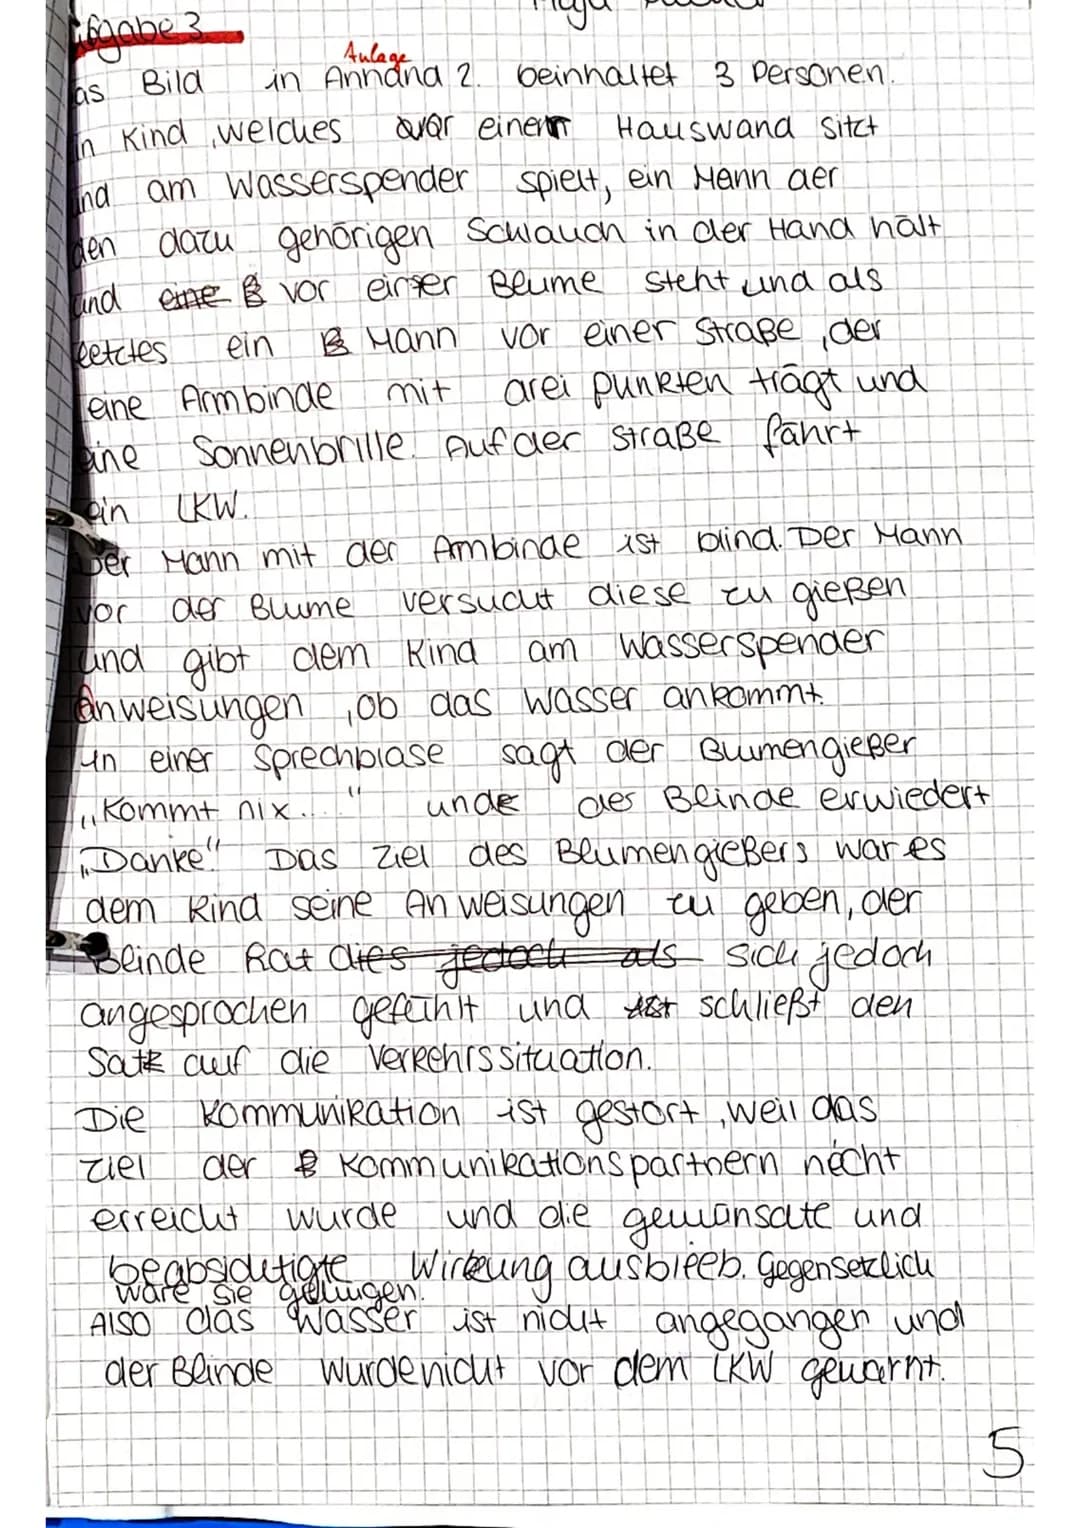 fgabe 3
Anlage
as Bild in Anhand 2. beinhaltet 3 Personen.
in Kind, welches vor einer Hauswand sitzt
nd am Wasserspender spielt, ein Mann der
den dazu gehörigen Schlauch in der Hand hält
und eine B vor einer Blume steht und als
letztes ein B Mann vor einer Straße, der
eine Armbinde mit drei punkten trägt und
eine Sonnenbrille. Auf der Straße fährt
ein LKW.
Der Mann mit der Armbinde ist blind. Der Mann
vor der Blume versucht diese zu gießen
und gibt dem Kind am Wasserspender
Anweisungen, ob das Wasser ankommt.
In einer Sprechblase sagt der Blumengießer
„Kommt nix..." und der Blinde erwiedert
„Danke". Das Ziel des Blumengießers war es
dem Kind seine Anweisungen zu geben, der
Blinde hat dies jedoch als sich jedoch
angesprochen gefühlt und ist schließt den
Satz auf die Verkehrssituation.
Die Kommunikation ist gestört, weil das
Ziel der B Kommunikationspartnern nicht
erreicht wurde und die gewünschte und
beabsichtigte Wirkung ausblieb. Gegensetzlich
wäre sie gelungen.
Also das Wasser ist nicht angegangen und
der Blinde wurde nicht vor dem LKW gewarnt.
5